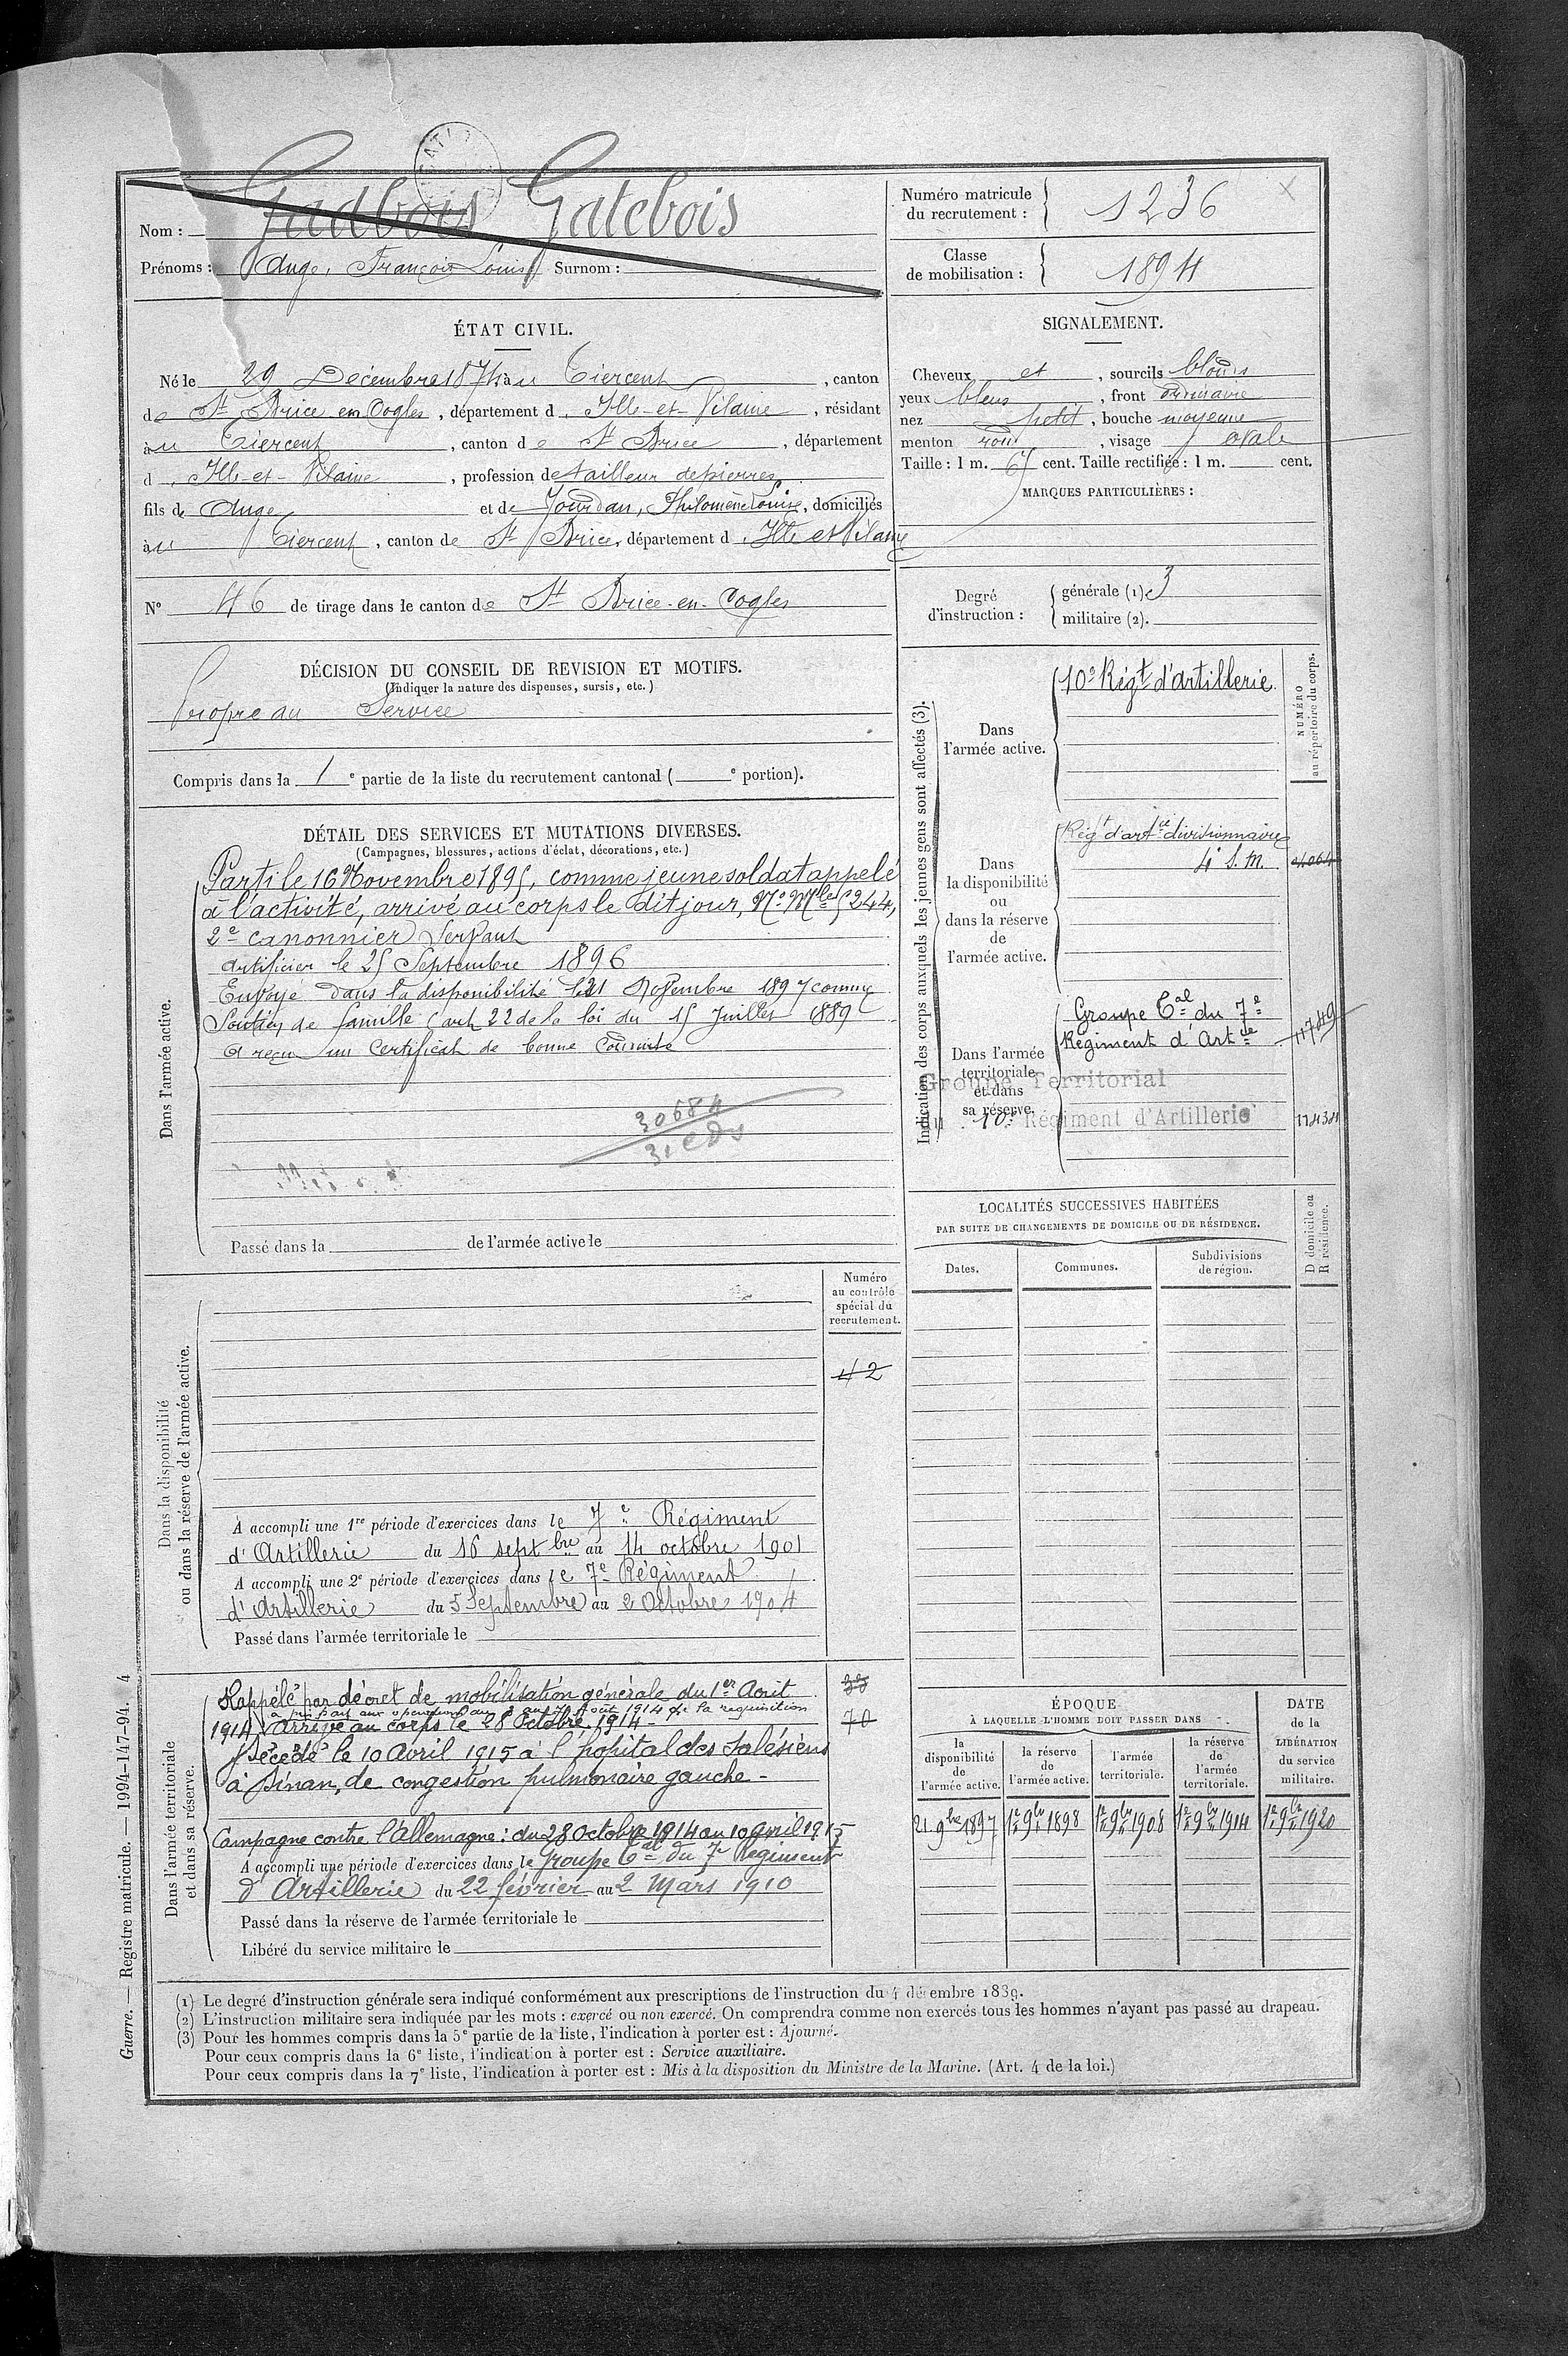 Nom : Gadbois Gatebois
Prénoms : Ange, François Louis Surnom :
Numéro matricule du recrutement : 1236
Classe de mobilisation : 1894
ÉTAT CIVIL.
Né le 29 Décembre 1874 à u Tiercent, canton
de St Brice en Cogles, département d'Ille-et-Vilaine, résidant
à u Tiercent, canton de St Brice, département
d'Ille-et-Vilaine, profession de tailleur de pierres
fils de Ange et de Jourdan, Philomène Louise, domiciliés
à u Tiercent, canton de St Brice, département d'Ille et Vilaine
N° 46 de tirage dans le canton de St Brice-en-Cogles
SIGNALEMENT.
Cheveux et, sourcils blonds
yeux bleus, front ordinaire
nez petit, bouche moyenne
menton rond, visage ovale
Taille : 1 m. 65 cent. Taille rectifiée : 1 m. cent.
MARQUES PARTICULIÈRES :
Degré d'instruction : générale (1). 3
militaire (2).
DÉCISION DU CONSEIL DE REVISION ET MOTIFS.
(Indiquer la nature des dispenses, sursis, etc.)
Propre au Service
Compris dans la 1e partie de la liste du recrutement cantonal ( e portion).
DÉTAIL DES SERVICES ET MUTATIONS DIVERSES.
(Campagnes, blessures, actions d'éclat, décorations, etc.)
Dans l'armée active.
Parti le 16 Novembre 1895, comme jeune soldat appelé
à l'activité, arrivé au corps le dit jour, N° Mle 5244,
2e canonnier servant
Artificier le 25 Septembre 1896
Envoyé dans la disponibilité le 21 Novembre 1897 comme
Soutien de famille (art 22 de la loi du 15 Juillet 1889
A reçu un Certificat de bonne Conduite
30684
Passé dans la de l'armée active le
Indication des corps auxquels les jeunes gens sont affectés (3).
NUMÉRO au répertoire du corps.
Dans l'armée active.
10e Régt d'Artillerie
Dans la disponibilité ou dans la réserve de l'armée active.
Régt d'artie divisionnaire
4e S.M.
Dans l'armée territoriale et dans sa réserve.
Groupe Tal du 7e
Régiment d'Artie 11749
Groupe Territorial
du 10e Régiment d'Artillerie 11434
LOCALITÉS SUCCESSIVES HABITÉES
PAR SUITE DE CHANGEMENTS DE DOMICILE OU DE RÉSIDENCE.
Dates. Communes. Subdivisions de région. D domicile ou R résidence.
Numéro
au contrôle
spécial du
recrutement.
42
Dans la disponibilité
ou dans la réserve de l'armée active.
A accompli une 1re période d'exercices dans le 7e Régiment
d'Artillerie du 16 septbre au 14 octobre 1901
A accompli une 2e période d'exercices dans le 7e Régiment
d'Artillerie du 5 Septembre au 2 Octobre 1904
Passé dans l'armée territoriale le
Dans l'armée territoriale
et dans sa réserve.
Rappelé par décret de mobilisation générale du 1er Août
1914 Arrivé au corps le 28 Octobre 1914 -
70
Décédé le 10 Avril 1915 à l'hôpital des Salésiens
à Dinan, de congestion pulmonaire gauche -
Campagne contre l'Allemagne : du 28 Octobre 1914 au 10 avril 1915
A accompli une période d'exercices dans le Groupe Tal du 7e Régiment
d'Artillerie du 22 février au 2 Mars 1910
Passé dans la réserve de l'armée territoriale le
Libéré du service militaire le
ÉPOQUE
À LAQUELLE L'HOMME DOIT PASSER DANS
la disponibilité de l'armée active. la réserve de l'armée active. l'armée territoriale. la réserve de l'armée territoriale.
DATE de la LIBÉRATION du service militaire.
21 9bre 1897 1er 9bre 1898 1er 9bre 1908 1er 9bre 1914 1er 9bre 1920
(1) Le degré d'instruction générale sera indiqué conformément aux prescriptions de l'instruction du 4 décembre 1889.
(2) L'instruction militaire sera indiquée par les mots : exercé ou non exercé. On comprendra comme non exercés tous les hommes n'ayant pas passé au drapeau.
(3) Pour les hommes compris dans la 5e partie de la liste, l'indication à porter est : Ajourné.
Pour ceux compris dans la 6e liste, l'indication à porter est : Service auxiliaire.
Pour ceux compris dans la 7e liste, l'indication à porter est : Mis à la disposition du Ministre de la Marine. (Art. 4 de la loi.)
Guerre. — Registre matricule. — 1994-147-94. 4